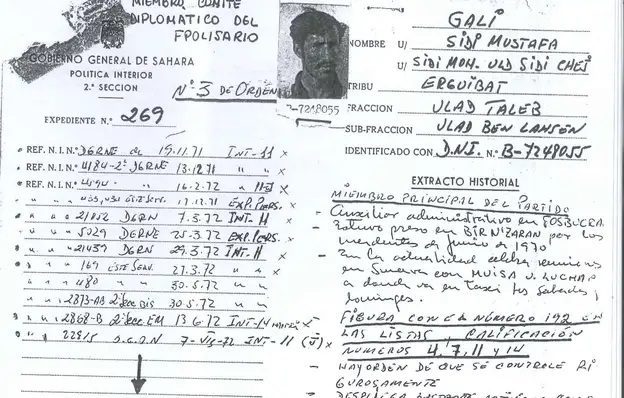 MIEMBRO COMITE
DIPLOMATICO DEL
FPOLISARIO
GOBIERNO GENERAL DE SAHARA
POLITICA INTERIOR
2.ª SECCION
Nº 3 DE ORDEN
EXPEDIENTE N.º 269
REF. N. I. N.º DGRNE de 15.11.71 INT-11 x
REF. N. I. N.º 4184-2ª DGRNE 13.12.71 " " x
REF. N. I. N.º 16.2.72 x
17.12.71 EXP.PERS. x
" " " 21052 DGRN 7.3.72 INT. 11 x
" " " 5029 DGRNE 25-3.72 EXP.PERS. x
" " " 21439 DGRN 29.3.72 INT. 11 x
" " " 169 ESTE SERV. 27.3.72 " " x
" " " 480 " 30.5.72 " "
" " " 2873-AB 2ª Sec BIS 30.5.72 " "
" " " 2868-B 2ª Sec EM 13-6-72 INT-14 x
" " " 22515 7-VIII-72 INT-11 x
B-7248055
GALI
NOMBRE U/ SIDI MUSTAFA
U/ SIDI MOH. ULD SIDI CHEJ
TRIBU ERGUIBAT
FRACCION ULAD TALEB
SUB-FRACCION ULAD BEN LAHSEN
IDENTIFICADO CON D.N.I. N.º B-7248055
EXTRACTO HISTORIAL
MIEMBRO PRINCIPAL DEL PARTIDO
- Auxiliar administrativo en FOSBUCRA.
- Estuvo preso en BIRNIZARAN por los
incidentes de junio de 1970
- En la actualidad celebra reuniones
en Smara con MUISA U. LUCHAP
a donde va en Taxi los sabados y
domingos.
FIGURA CON EL NÚMERO 192 EN
LAS LISTAS, CALIFICACIÓN
NUMEROS 4, 7, 11 y 14
- HAY ORDEN DE QUE SE CONTROLE RI
GUROSAMENTE
- DESPLIEGA BASTANTE